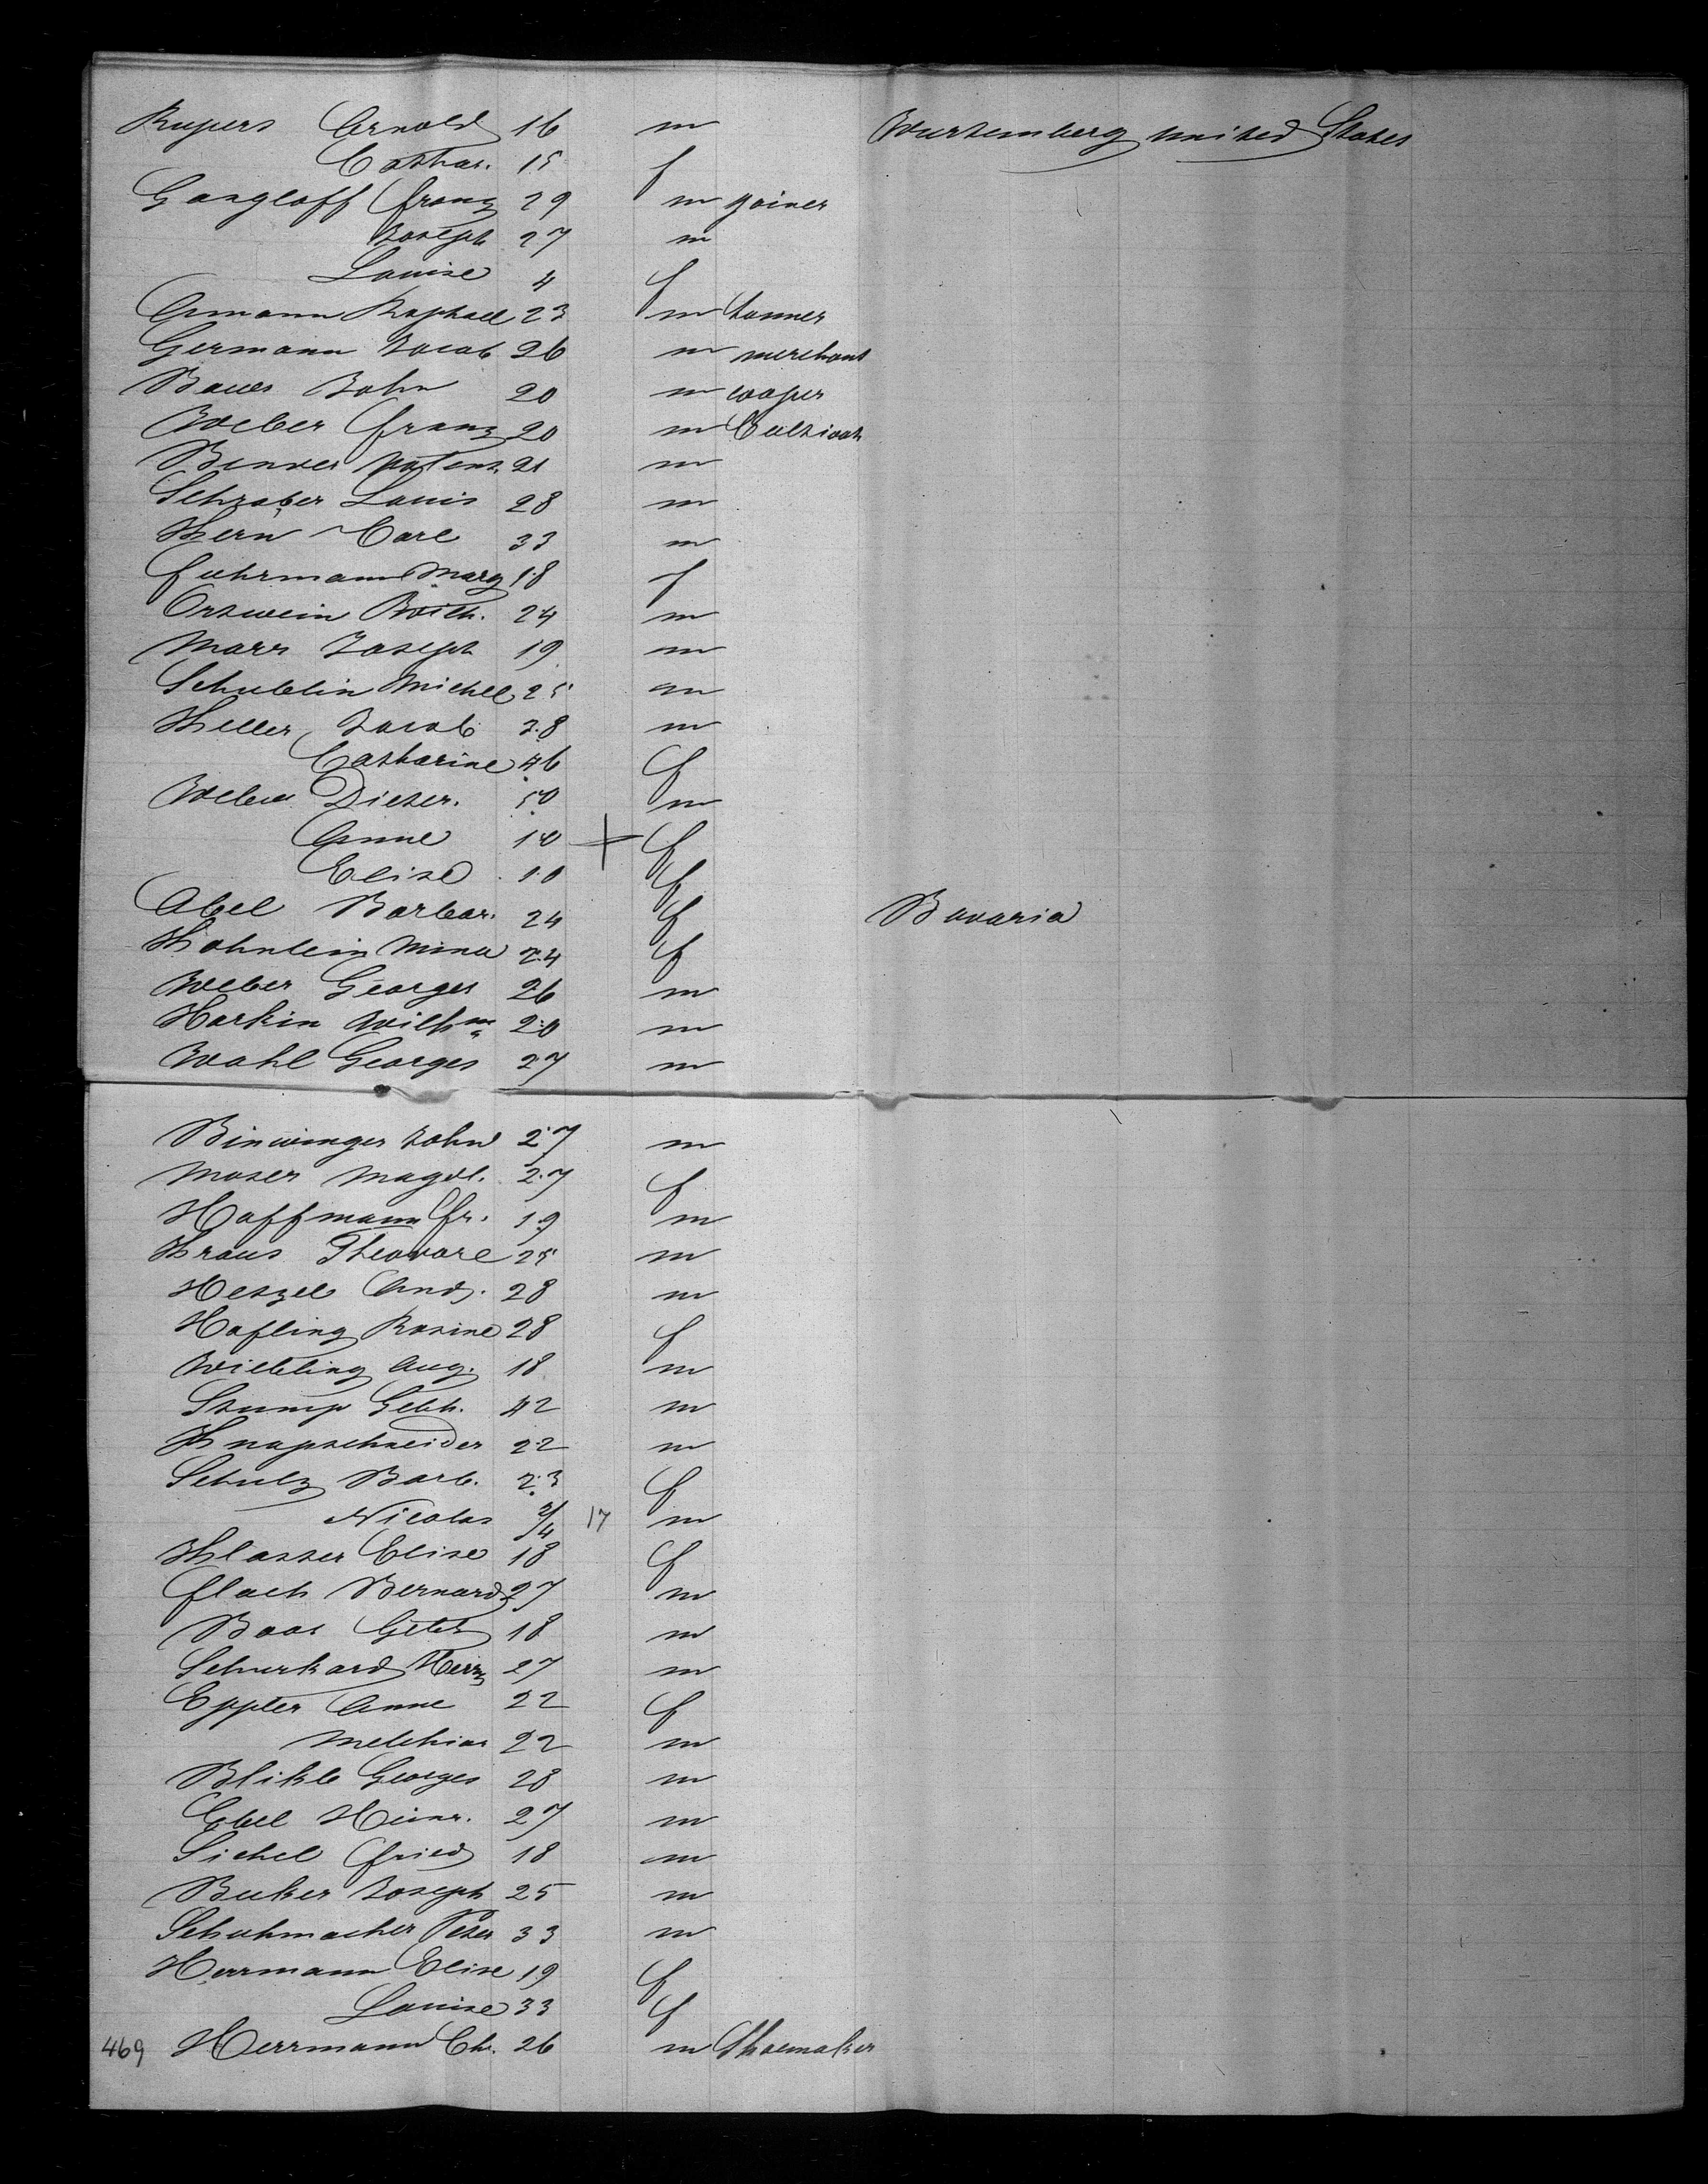 Kupers Arnold 16 m Wurtemberg United States
Cathar. 15 f
Gangloff Franz 29 m joiner
Joseph 27 m
Louise 4 f
Amann Raphael 23 m tanner
Germann Jacob 26 m merchant
Bauer John 20 m cooper
Weber Franz 20 m Cultivat
Bender 21 m
Schraber Louis 28 m
Kern Carl 33 m
Fuhrmann Marg 18 f
Ortwein 24 m
Marx Joseph 19 m
Schublin Michel 25 m
Keller Jacob 38 m
Catharine 46 f
Weber Dieter. 50 m
Anne 10 + f
Elise 10 f
Abel Barbar. 24 f Bavaria
Kohnlein Mina 24 f
Weber Georges 26 m
Harkin Wilhm 20 m
Wahl Georges 27 m
Binwinger John 27 m
Moser Magdl. 27 f
Hoffmann Fr. 19 m
Kraus Theodore 25 m
Hetzel And. 28 m
Hofling Rosine 28 f
Wiebling Aug. 18 m
Stump Gebh. 42 m
Knapschneider 22 m
Schulz Barb. 23 f
Nicolas 3/4 17 m
Klasser Elise 18 f
Flach Bernard 27 m
Boos 18 m
Schurkard Herm 27 m
Eppler Anne 22 f
Melchior 22 m
Blikle Georges 28 m
Ebel Heinr. 27 m
Sichel Fried 18 m
Buker Joseph 25 m
Schuhmacher Peter 33 m
Herrmann Elise 19 f
Louise 33 f
469 Herrmann Ch. 26 m Shoemaker